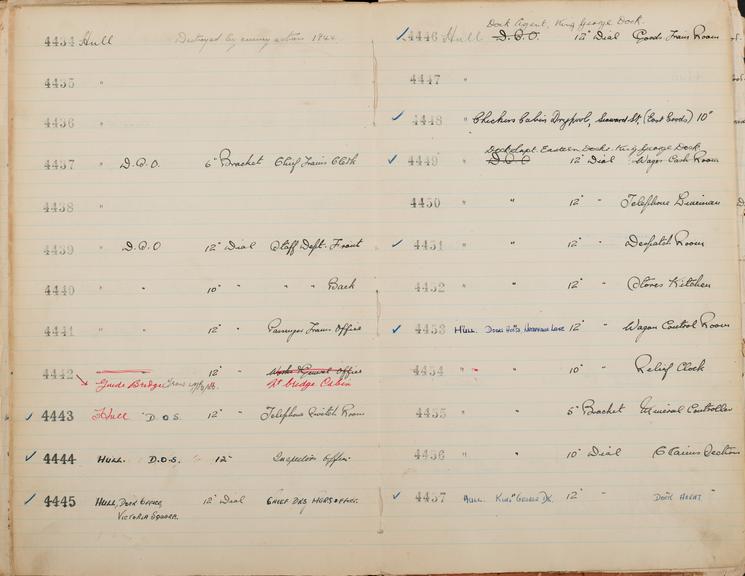 4434 Hull Destroyed by enemy action 1944.
4435 "
4436 "
4437 " D.S.O. 6" Bracket Chief Trains Clerk
4438 "
4439 " D.S.O 12" Dial Staff Dept. Front
4440 " " 10" " " " Back
4441 " " 12" " Passenger Trains Office
4442 12" " Office
Guide Bridge Trans Cabin
4443 Hull D.O.S. 12" " Telephone Switch Room
4444 HULL. D.O.S. " 12" Inspectors Office.
4445 HULL, DOCK OFFICE, 12" Dial CHIEF DKS MGRS OFFICE.
VICTORIA SQUARE.
Dock Agent, King George Dock.
4446 Hull D.S.O. 12" Dial Goods Trains Room
4447 "
4448 " Checkers Cabin Drypool, St. (East Goods) 10"
Dock Supt. Eastern Docks. King George Dock
4449 " 12" Dial Wages Cash Room
4450 " " 12" " Telephone Lineman
4451 " " 12" " Despatch Room
4452 " " 12" " Stores Kitchen
4453 HULL. 12" " Wagon Control Room
4454 " " 10" " Relief Clock
4455 " " 6" Bracket Mineral Controller
4456 " " 10" Dial Claims Section
4457 HULL. KING GEORGE DK. 12" " DOCK AGENT "